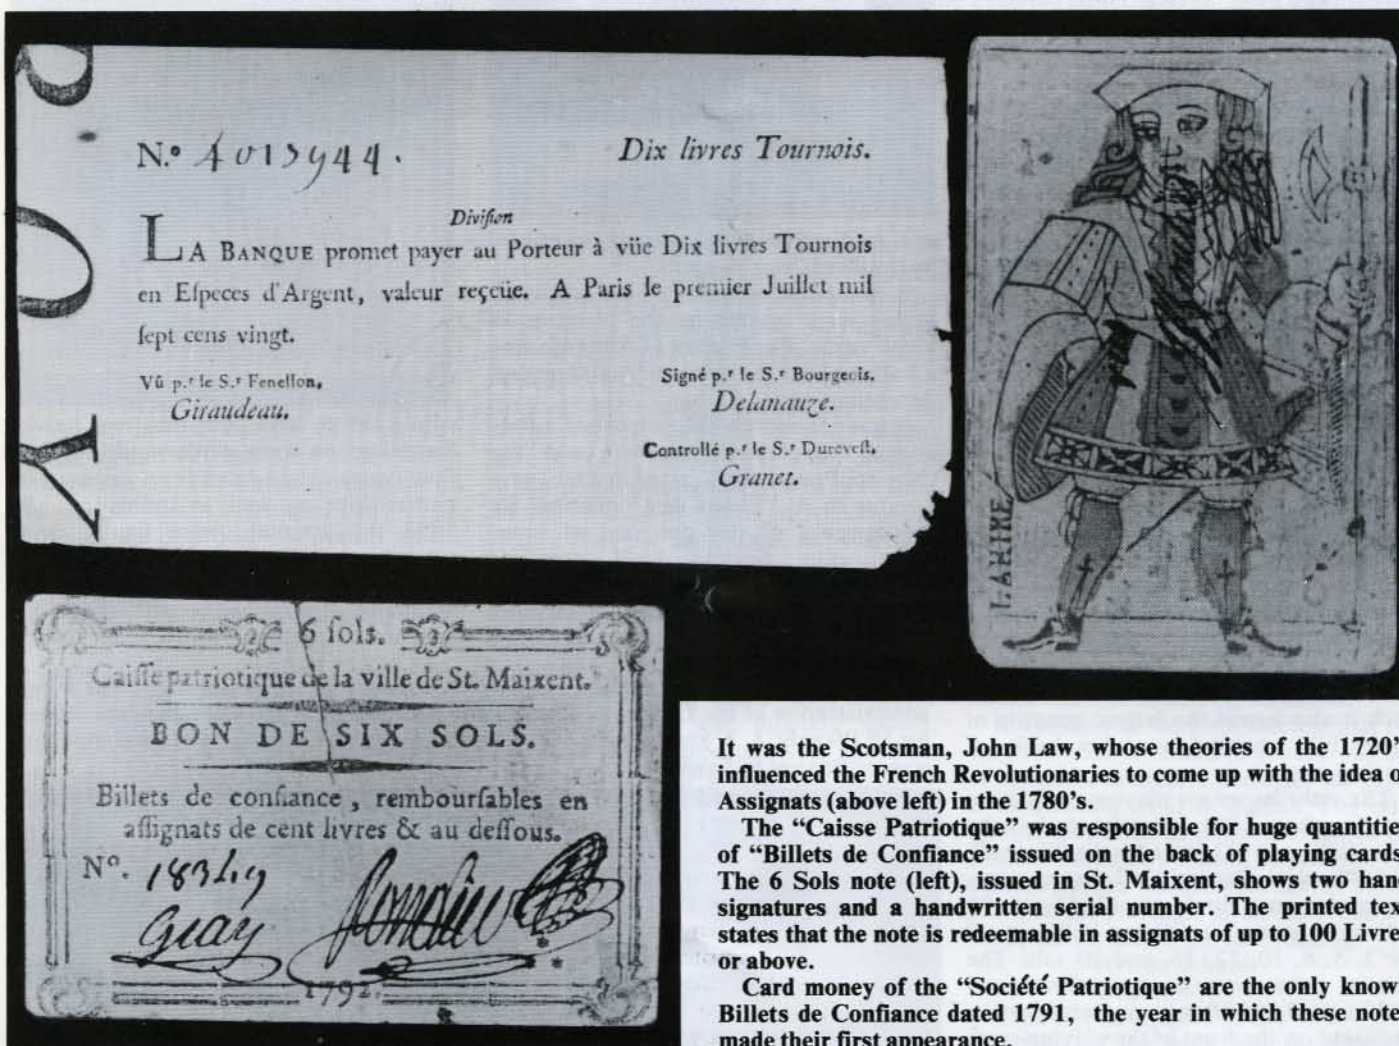 N.º 4013944.
Dix livres Tournois.
Division
LA BANQUE promet payer au Porteur à vüe Dix livres Tournois
en Eſpeces d'Argent, valeur reçeüe. A Paris le premier Juillet mil
ſept cens vingt.
Vû p.ʳ le S.ʳ Fenellon,
Giraudeau.
Signé p.ʳ le S.ʳ Bourgeois.
Delanauze.
Controllé p.ʳ le S.ʳ Dureveſt,
Granet.
LAHIRE
6 ſols.
Caiſſe patriotique de la ville de St. Maixent.
BON DE SIX SOLS.
Billets de confiance, rembourſables en
aſſignats de cent livres & au deſſous.
Nº.
Geay
1792.
It was the Scotsman, John Law, whose theories of the 1720'
influenced the French Revolutionaries to come up with the idea o
Assignats (above left) in the 1780's.
The “Caisse Patriotique” was responsible for huge quantitie
of “Billets de Confiance” issued on the back of playing cards
The 6 Sols note (left), issued in St. Maixent, shows two han
signatures and a handwritten serial number. The printed tex
states that the note is redeemable in assignats of up to 100 Livre
or above.
Card money of the “Société Patriotique” are the only know
Billets de Confiance dated 1791, the year in which these note
made their first appearance.